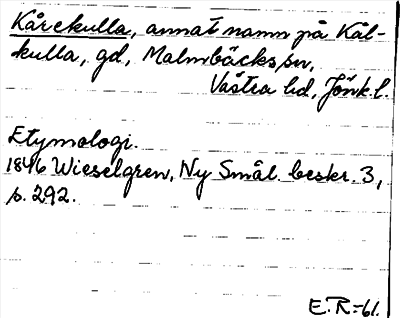 Kårekulla, annat namn på Kål-
kulla, gd, Malmbäcks sn,
Västra hd, Jönk.l.
Etymologi.
1846 Wieselgren, Ny Smål. beskr. 3,
s. 292.
E.R.-61.